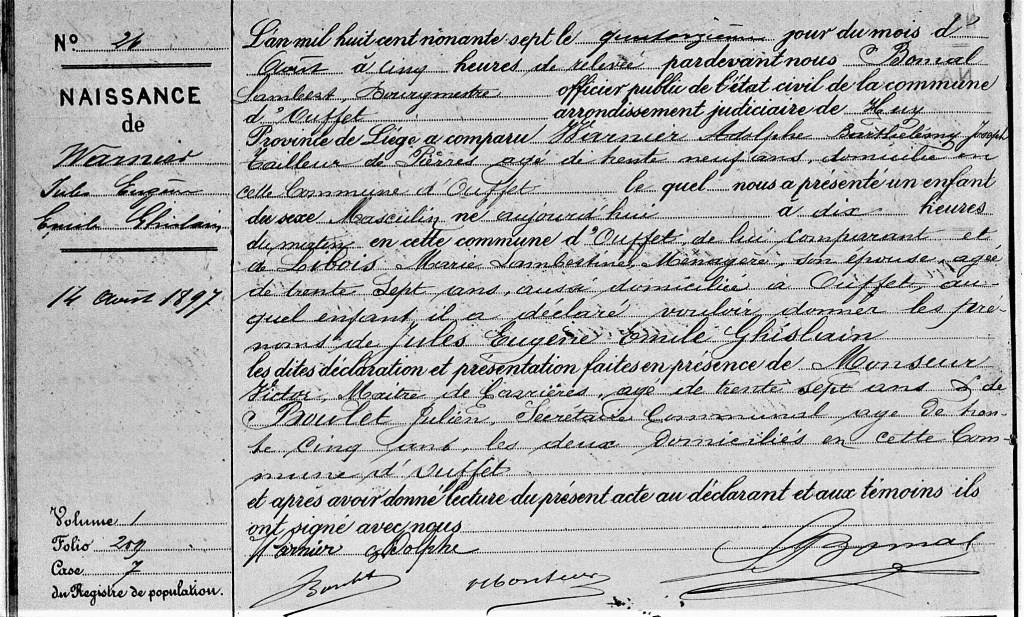 N° 26
NAISSANCE
de
Warnier
Jules Eugène
Emile Ghislain
14 août 1897
Volume 1
Folio 209
Case 7
du Registre de population.
L'an mil huit cent nonante-sept le quatorzième jour du mois d'
Août à cinq heures de relevée pardevant nous Bonnal
Lambert, Bourgmestre officier public de l'état civil de la commune
d'Ouffet arrondissement judiciaire de Huy
Province de Liége a comparu Warnier Adolphe Barthélémy Joseph
Tailleur de Pierres agé de trente neuf ans, domicilié en
cette Commune d'Ouffet le quel nous a présenté un enfant
du sexe Masculin né aujourd'hui à dix heures
du matin en cette commune d'Ouffet, de lui comparant et
de Libois Marie Lambertine, Ménagère, son épouse, agée
de trente sept ans, aussi domiciliée à Ouffet, au-
quel enfant il a déclaré vouloir donner les pré-
noms de Jules Eugène Emile Ghislain
les dites déclaration et présentation faites en présence de Monseur
Victor, Maitre de Carrières, agé de trente sept ans & de
Boulet Julien, Secretaire Communal agé de tren-
te cinq ans, les deux domiciliés en cette Com-
mune d'Ouffet
et apres avoir donné lecture du présent acte au déclarant et aux témoins ils
ont signé avec nous
Warnier Adolphe
Boulet VMonseur